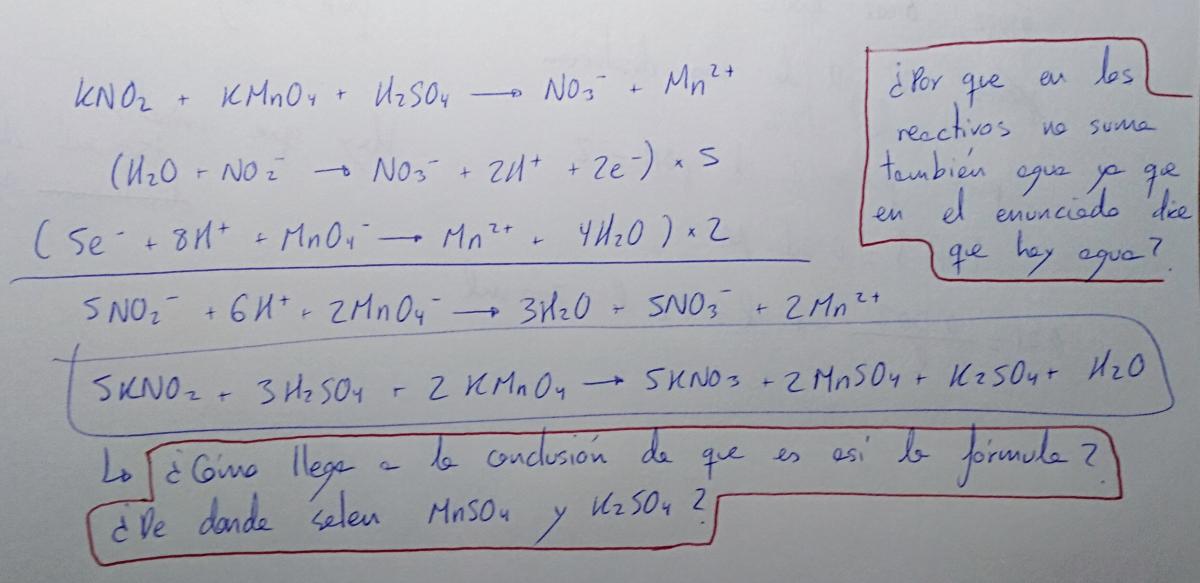 KNO₂ + KMnO₄ + H₂SO₄ → NO₃⁻ + Mn²⁺
(H₂O + NO₂⁻ → NO₃⁻ + 2H⁺ + 2e⁻) × 5
(5e⁻ + 8H⁺ + MnO₄⁻ → Mn²⁺ + 4H₂O) × 2
5NO₂⁻ + 6H⁺ + 2MnO₄⁻ → 3H₂O + 5NO₃⁻ + 2Mn²⁺
5KNO₂ + 3H₂SO₄ + 2KMnO₄ → 5KNO₃ + 2MnSO₄ + K₂SO₄ + H₂O
¿Por que en los
reactivos no suma
también agua ya que
en el enunciado dice
que hay agua?
↳ ¿Cómo llega a la conclusión de que es asi la fórmula?
¿De donde salen MnSO₄ y K₂SO₄?